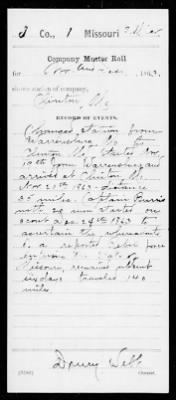 J Co., 1 Missouri
Company Muster Roll
for Nov and Dec, 1863.
shows station of company,
Clinton, Mo.
RECORD OF EVENTS.
Changed station from
Warrensburg, Mo. to
Clinton Mo. Started Nov.
10th from Warrensburg and
arrived at Clinton Mo.
Nov. 1863. Distance
35 miles. Captain Burris
with 28 men started on
scout Nov 24th 1863 to
ascertain the whereabouts
of a reported Rebel force
in
Missouri, remained absent
six days traveled 140
miles.
Copyist.